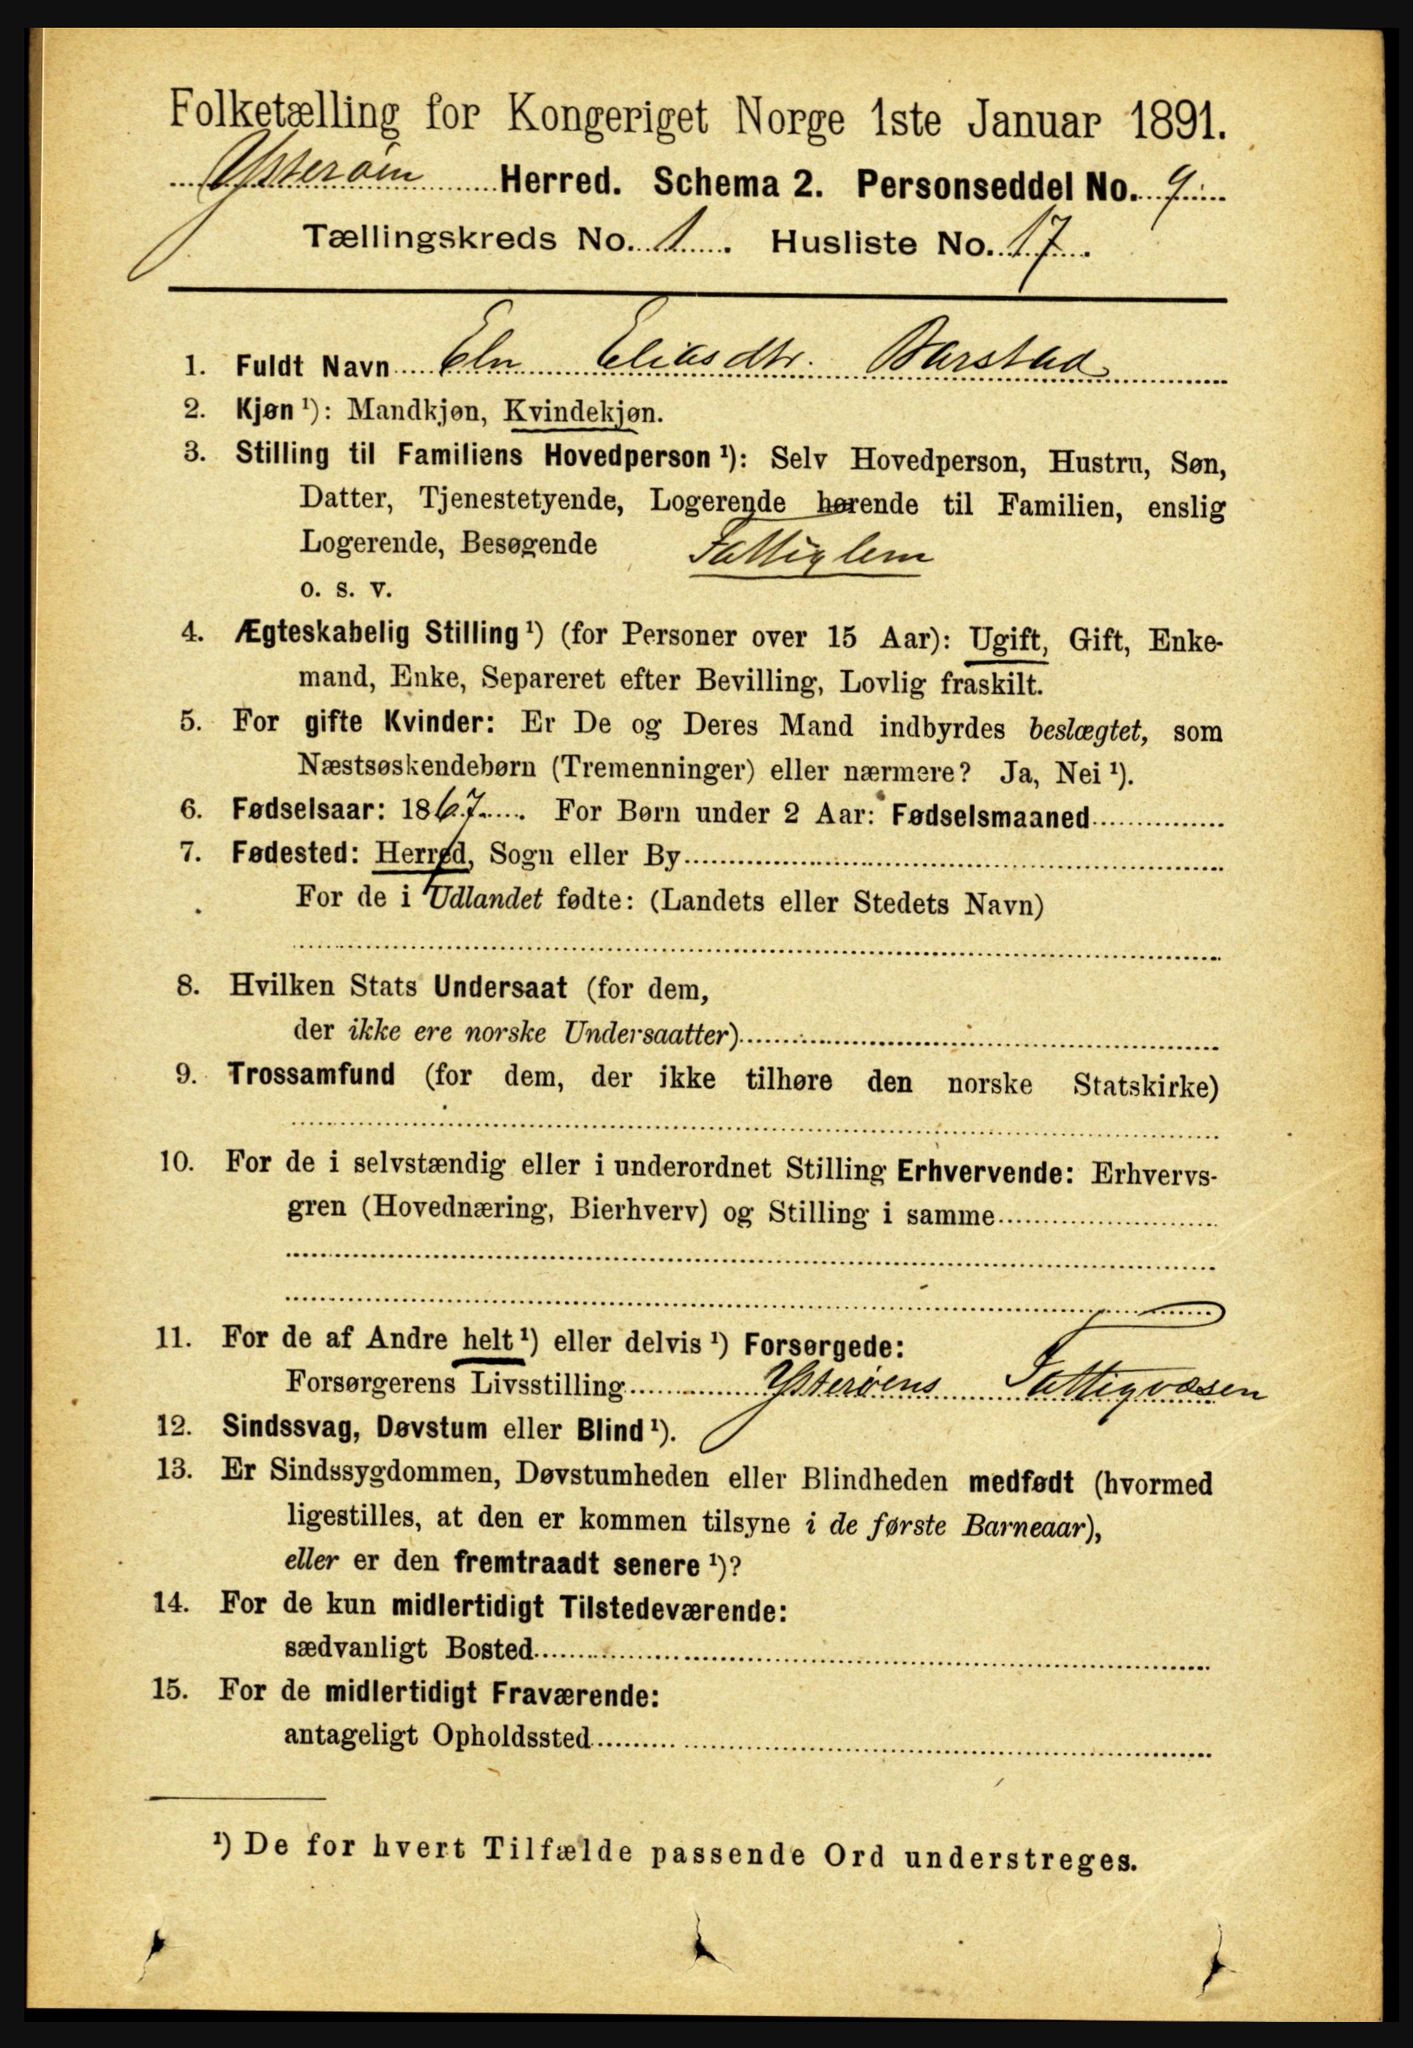 Folketælling for Kongeriget Norge 1ste Januar 1891.
Ytterøin Herred. Schema 2. Personseddel No. 9.
Tællingskreds No. 1. Husliste No. 17.
1. Fuldt Navn Eln Eliasdtr. Barstad
2. Kjøn ¹): Mandkjøn, Kvindekjøn.
3. Stilling til Familiens Hovedperson ¹): Selv Hovedperson, Hustru, Søn,
Datter, Tjenestetyende, Logerende hørende til Familien, enslig
Logerende, Besøgende Fattiglem
o. s. v.
4. Ægteskabelig Stilling ¹) (for Personer over 15 Aar): Ugift, Gift, Enke-
mand, Enke, Separeret efter Bevilling, Lovlig fraskilt.
5. For gifte Kvinder: Er De og Deres Mand indbyrdes beslægtet, som
Næstsøskendebørn (Tremenninger) eller nærmere? Ja, Nei ¹).
6. Fødselsaar: 1867. For Børn under 2 Aar: Fødselsmaaned
7. Fødested: Herred, Sogn eller By
For de i Udlandet fødte: (Landets eller Stedets Navn)
8. Hvilken Stats Undersaat (for dem,
der ikke ere norske Undersaatter)
9. Trossamfund (for dem, der ikke tilhøre den norske Statskirke)
10. For de i selvstændig eller i underordnet Stilling Erhvervende: Erhvervs-
gren (Hovednæring, Bierhverv) og Stilling i samme
11. For de af Andre helt ¹) eller delvis ¹) Forsørgede:
Forsørgerens Livsstilling Ytterøens Fattigvæsen
12. Sindssvag, Døvstum eller Blind ¹).
13. Er Sindssygdommen, Døvstumheden eller Blindheden medfødt (hvormed
ligestilles, at den er kommen tilsyne i de første Barneaar),
eller er den fremtraadt senere ¹)?
14. For de kun midlertidigt Tilstedeværende:
sædvanligt Bosted
15. For de midlertidigt Fraværende:
antageligt Opholdssted
¹) De for hvert Tilfælde passende Ord understreges.